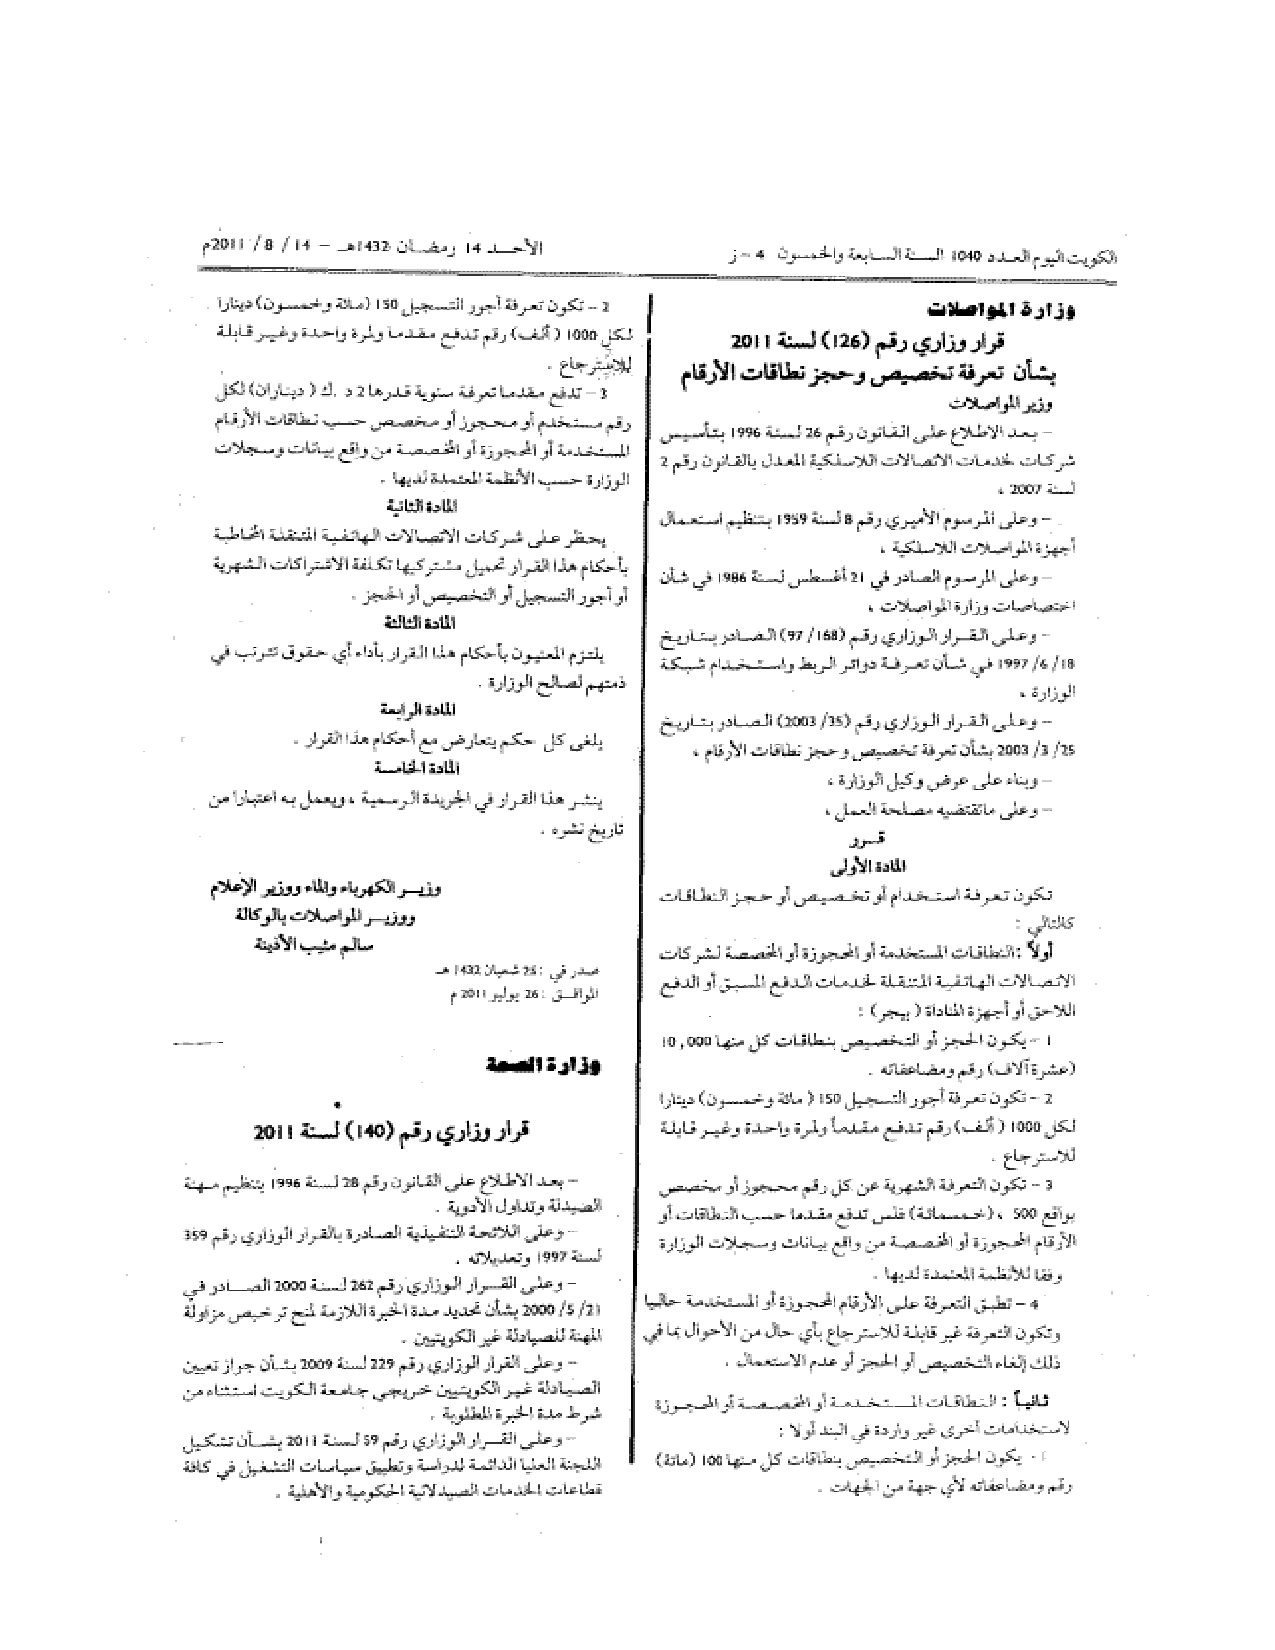 الكويت اليوم العدد 1040 السنة السابعة والخمسون 4 – ز
الأحد 14 رمضان 1432هـ – 14 / 8 / 2011م
وزارة المواصلات
قرار وزاري رقم (126) لسنة 2011
بشأن تعرفة تخصيص وحجز نطاقات الأرقام
وزير المواصلات
– بعد الاطلاع على القانون رقم 26 لسنة 1996 بتأسيس
شركات خدمات الاتصالات اللاسلكية المعدل بالقانون رقم 2
لسنة 2007 ،
– وعلى المرسوم الأميري رقم 8 لسنة 1959 بتنظيم استعمال
أجهزة المواصلات اللاسلكية ،
– وعلى المرسوم الصادر في 21 أغسطس لسنة 1986 في شأن
اختصاصات وزارة المواصلات ،
– وعلى القرار الوزاري رقم (168/ 97) الصادر بتاريخ
18/ 6/ 1997 في شأن تعرفة دوائر الربط واستخدام شبكة
الوزارة ،
– وعلى القرار الوزاري رقم (35/ 2003) الصادر بتاريخ
25/ 3/ 2003 بشأن تعرفة تخصيص وحجز نطاقات الأرقام ،
– وبناء على عرض وكيل الوزارة ،
– وعلى ماتقتضيه مصلحة العمل ،
قرر
المادة الأولى
تكون تعرفة استخدام أو تخصيص أو حجز النطاقات
كالتالي :
أولاً : النطاقات المستخدمة أو المحجوزة أو المخصصة لشركات
الاتصالات الهاتفية المتنقلة لخدمات الدفع المسبق أو الدفع
اللاحق أو أجهزة المناداة ( بيجر) :
1 – يكون الحجز أو التخصيص بنطاقات كل منها 10,000
(عشرة آلاف) رقم ومضاعفاته .
2 – تكون تعرفة أجور التسجيل 150 ( مائة وخمسون) دينارا
لكل 1000 ( ألف) رقم تدفع مقدماً ولمرة واحدة وغير قابلة
للاسترجاع .
3 – تكون التعرفة الشهرية عن كل رقم محجوز أو مخصص
بواقع 500 ، (خمسمائة) فلس تدفع مقدما حسب النطاقات أو
الأرقام المحجوزة أو المخصصة من واقع بيانات وسجلات الوزارة
وفقا للأنظمة المعتمدة لديها .
4 – تطبق التعرفة على الأرقام المحجوزة أو المستخدمة حاليا
وتكون التعرفة غير قابلة للاسترجاع بأي حال من الأحوال بما في
ذلك إلغاء التخصيص أو الحجز أو عدم الاستعمال .
ثانياً : النطاقات المستخدمة أو المخصصة أو المحجوزة
لاستخدامات أخرى غير واردة في البند أولا :
1 - يكون الحجز أو التخصيص بنطاقات كل منها 100 (مائة)
رقم ومضاعفاته لأي جهة من الجهات .
2 – تكون تعرفة أجور التسجيل 150 (مائة وخمسون) دينارا
لكل 1000 ( ألف) رقم تدفع مقدما ولمرة واحدة وغير قابلة
للاسترجاع .
3 – تدفع مقدما تعرفة سنوية قدرها 2 د .ك ( ديناران) لكل
رقم مستخدم أو محجوز أو مخصص حسب نطاقات الأرقام
المستخدمة أو المحجوزة أو المخصصة من واقع بيانات وسجلات
الوزارة حسب الأنظمة المعتمدة لديها .
المادة الثانية
يحظر على شركات الاتصالات الهاتفية المتنقلة المخاطبة
بأحكام هذا القرار تحميل مشتركيها تكلفة الاشتراكات الشهرية
أو أجور التسجيل أو التخصيص أو الحجز .
المادة الثالثة
يلتزم المعنيون بأحكام هذا القرار بأداء أي حقوق تترتب في
ذمتهم لصالح الوزارة .
المادة الرابعة
يلغى كل حكم يتعارض مع أحكام هذا القرار .
المادة الخامسة
ينشر هذا القرار في الجريدة الرسمية ، ويعمل به اعتبارا من
تاريخ نشره .
وزير الكهرباء والماء ووزير الإعلام
ووزير المواصلات بالوكالة
سالم مثيب الأذينة
صدر في : 25 شعبان 1432 هـ
الموافق : 26 يوليو 2011 م
وزارة الصحة
قرار وزاري رقم (140) لسنة 2011
– بعد الاطلاع على القانون رقم 28 لسنة 1996 بتنظيم مهنة
الصيدلة وتداول الأدوية .
– وعلى اللائحة التنفيذية الصادرة بالقرار الوزاري رقم 359
لسنة 1997 وتعديلاته .
– وعلى القرار الوزاري رقم 262 لسنة 2000 الصادر في
21/ 5/ 2000 بشأن تحديد مدة الخبرة اللازمة لمنح ترخيص مزاولة
المهنة للصيادلة غير الكويتيين .
– وعلى القرار الوزاري رقم 229 لسنة 2009 بشأن جواز تعيين
الصيادلة غير الكويتيين خريجي جامعة الكويت استثناء من
شرط مدة الخبرة المطلوبة .
– وعلى القرار الوزاري رقم 59 لسنة 2011 بشأن تشكيل
اللجنة العليا الدائمة لدراسة وتطبيق سياسات التشغيل في كافة
قطاعات الخدمات الصيدلانية الحكومية والأهلية .